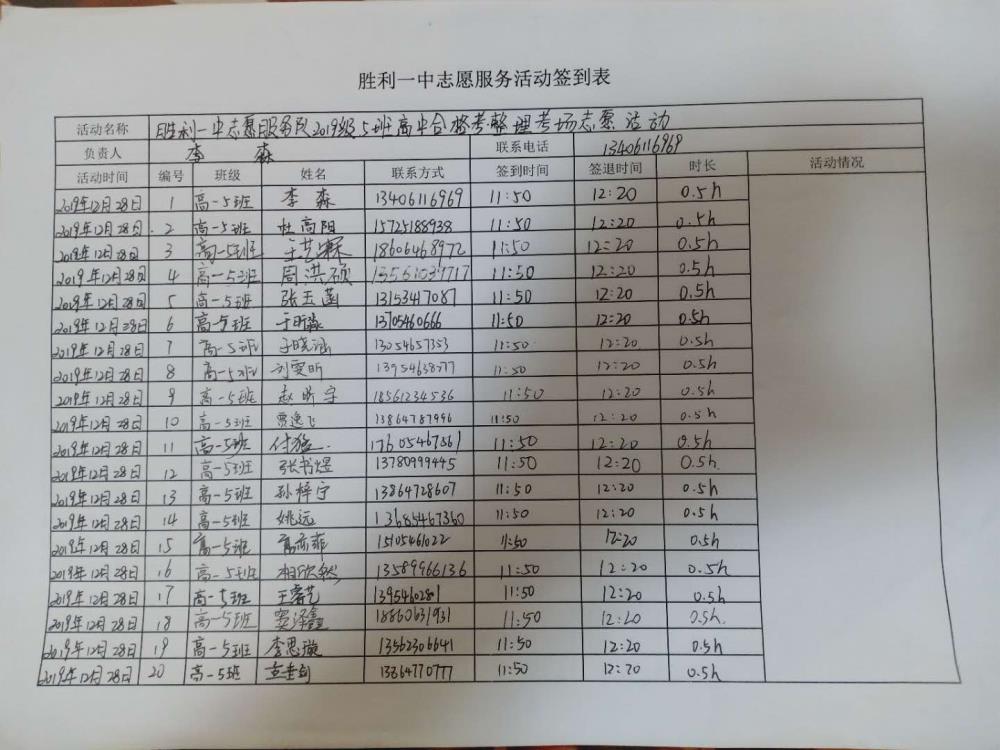 胜利一中志愿服务活动签到表
活动名称 胜利一中志愿服务队2019级5班高中合格考整理考场志愿活动
负责人 李 森 联系电话 13406116969
活动时间 编号 班级 姓名 联系方式 签到时间 签退时间 时长 活动情况
2019年12月28日 1 高一5班 李 森 13406116969 11:50 12:20 0.5h
2019年12月28日 2 高一5班 杜高阳 15725188938 11:50 12:20 0.5h
2019年12月28日 3 高一5班 王艺霖 18606468972 11:50 12:20 0.5h
2019年12月28日 4 高一5班 周洪硕 11:50 12:20 0.5h
2019年12月28日 5 高一5班 张玉菡 1315347087 11:50 12:20 0.5h
2019年12月28日 6 高一5班 于昕淼 13705460666 11:50 12:20 0.5h
2019年12月28日 7 高一5班 于晓涵 13054657353 11:50 12:20 0.5h
2019年12月28日 8 高一5班 刘雯昕 13954638077 11:50 12:20 0.5h
2019年12月28日 9 高一5班 赵昕宇 18561234536 11:50 12:20 0.5h
2019年12月28日 10 高一5班 贾逸飞 13864787996 11:50 12:20 0.5h
2019年12月28日 11 高一5班 付猛 17605467561 11:50 12:20 0.5h
2019年12月28日 12 高一5班 张书煜 13780999445 11:50 12:20 0.5h
2019年12月28日 13 高一5班 孙梓宁 13864728607 11:50 12:20 0.5h
2019年12月28日 14 高一5班 姚远 13685467360 11:50 12:20 0.5h
2019年12月28日 15 高一5班 高亦菲 15105461022 11:50 12:20 0.5h
2019年12月28日 16 高一5班 相欣然 13589966136 11:50 12:20 0.5h
2019年12月28日 17 高一5班 13954602801 11:50 12:20 0.5h
2019年12月28日 18 高一5班 窦泽鑫 18860631931 11:50 12:20 0.5h.
2019年12月28日 19 高一5班 李思璇 13562306641 11:50 12:20 0.5h
2019年12月28日 20 高一5班 13864770777 11:50 12:20 0.5h